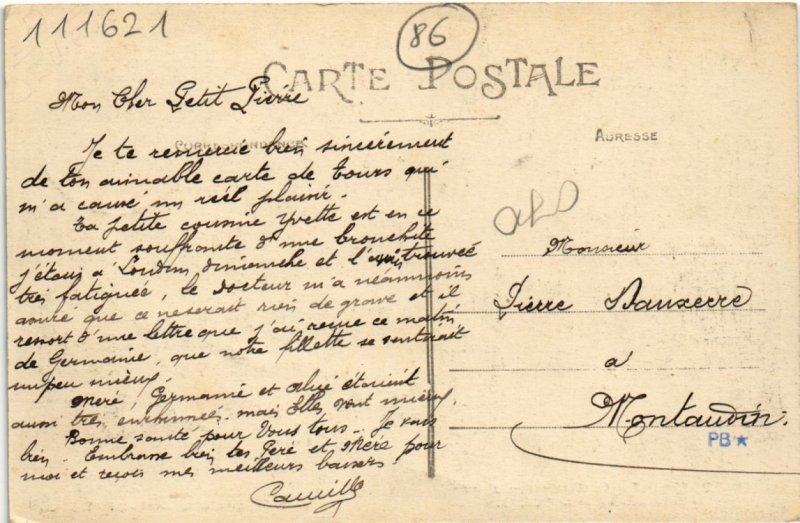 111621
86
CARTE POSTALE
Mon Cher Petit Pierre
CORRESPONDANCE
ADRESSE
Je te remercie bien sincèrement
de ton aimable carte de Tours qui
m'a causé un réel plaisir.
Ta petite cousine Yvette est en ce
moment souffrante d'une bronchite
j'étais à Loudun dimanche et l'avais trouvée
très fatiguée, le Docteur m'a néanmoins
assuré que ce ne serait rien de grave et il
ressort d'une lettre que j'ai reçue ce matin
de Germanie, que notre fillette se sentirait
un peu mieux.
Mère Germanie et étaient
aussi très enrhumées, mais Elles vont mieux.
Bonne santé pour Vous tous. Je vais
bien. Embrasse bien tes Père et Mère pour
moi et reçois mes meilleurs baisers.
Camille
Monsieur
Pierre Dauxerre
à
Montaudin.
PB ★